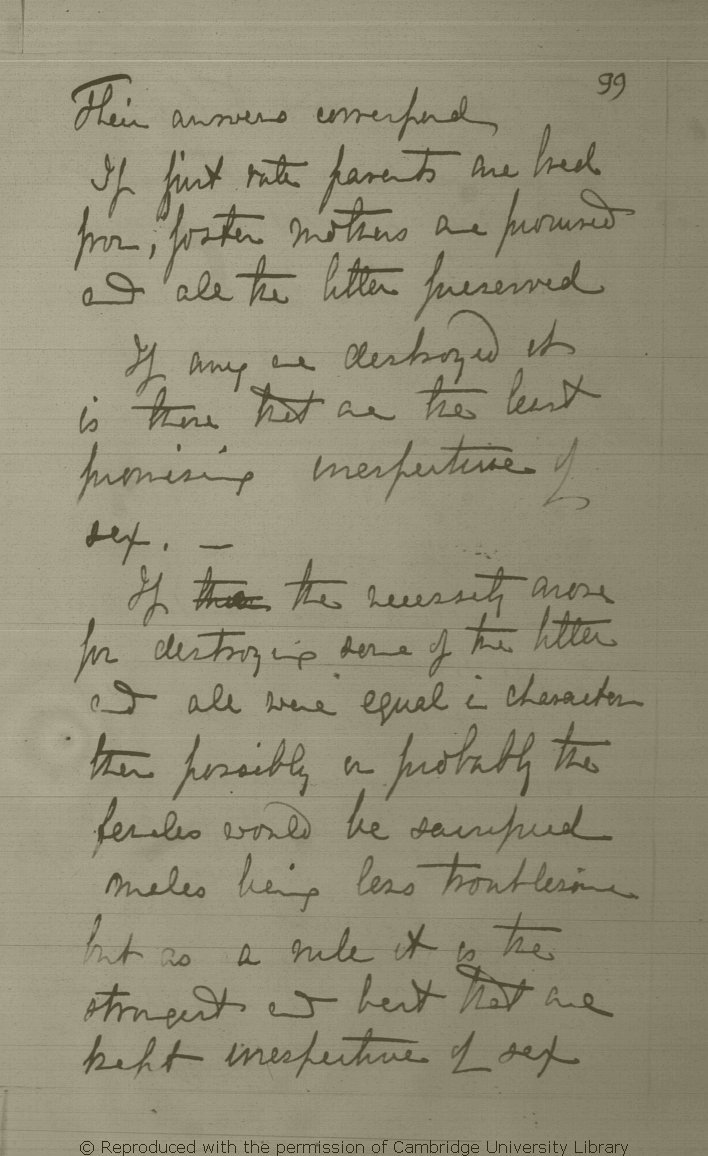 99
Their answers correspond,
If first rate parents are bred
from, foster mothers are promised
and all the litter preserved
If any are destroyed it
is those that are the least
promising irrespective of
sex. —
If the necessity arose
for destroying some of the litter
and all were equal in character
then possibly or probably the
females would be sacrificed
males being less troublesome
but as a rule it is the
strongest and best that are
kept irrespective of sex
© Reproduced with the permission of Cambridge University Library